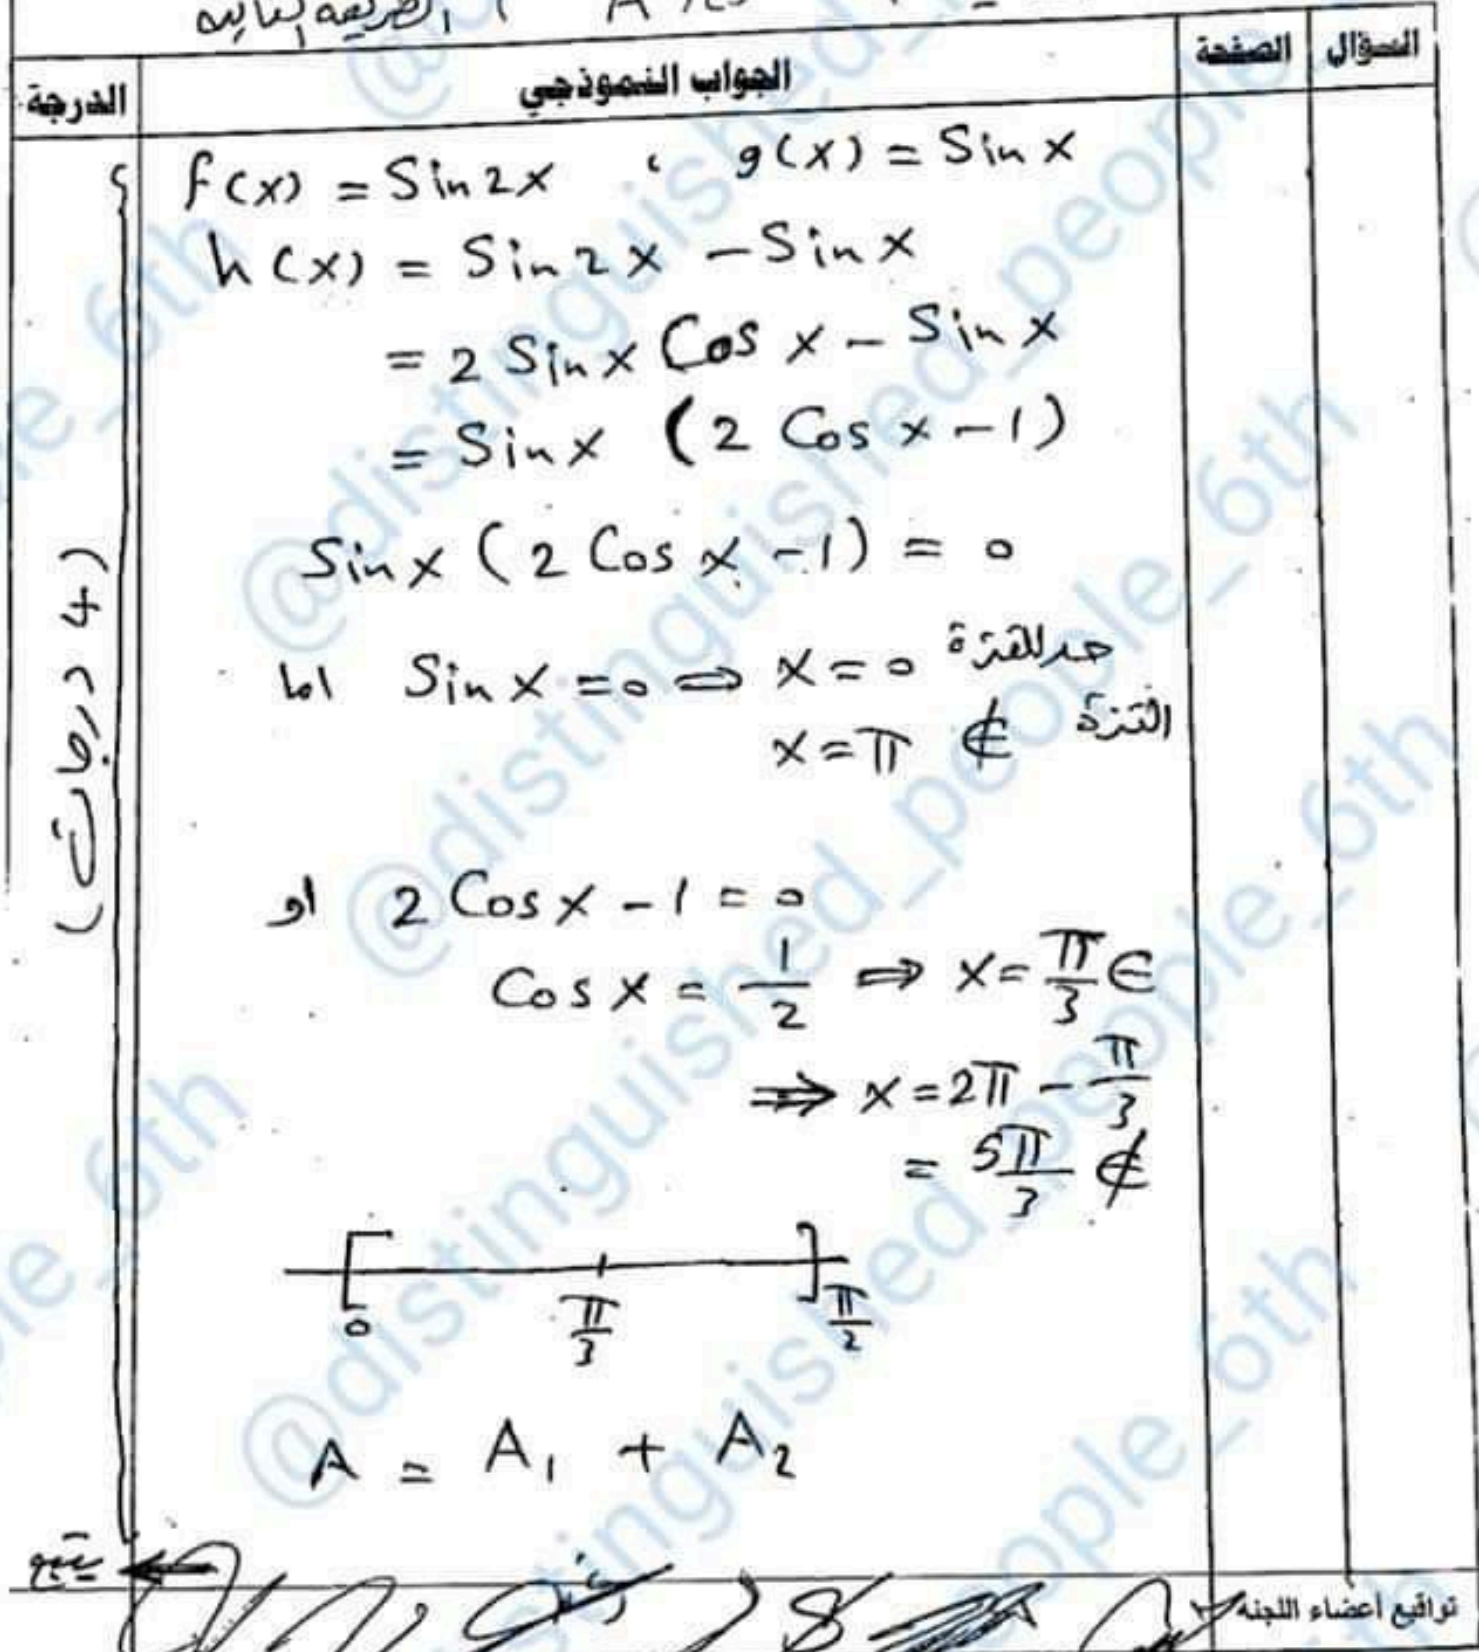 الطريقة الثانية
السؤال الصفحة الجواب النموذجي الدرجة
f(x) = Sin 2x ، g(x) = Sin x
h(x) = Sin 2x - Sin x
= 2 Sin x Cos x - Sin x
= Sin x (2 Cos x - 1)
Sin x (2 Cos x - 1) = 0
اما Sin x = 0 ⇒ x = 0 حد للفترة
x = π ∉ الفترة
او 2 Cos x - 1 = 0
Cos x = 1/2 ⇒ x = π/3 ∈
⇒ x = 2π - π/3
= 5π/3 ∉
0 π/3 π/2
A = A₁ + A₂
(4 درجات)
يتبع
تواقيع أعضاء اللجنة
@distinguished_people_6th